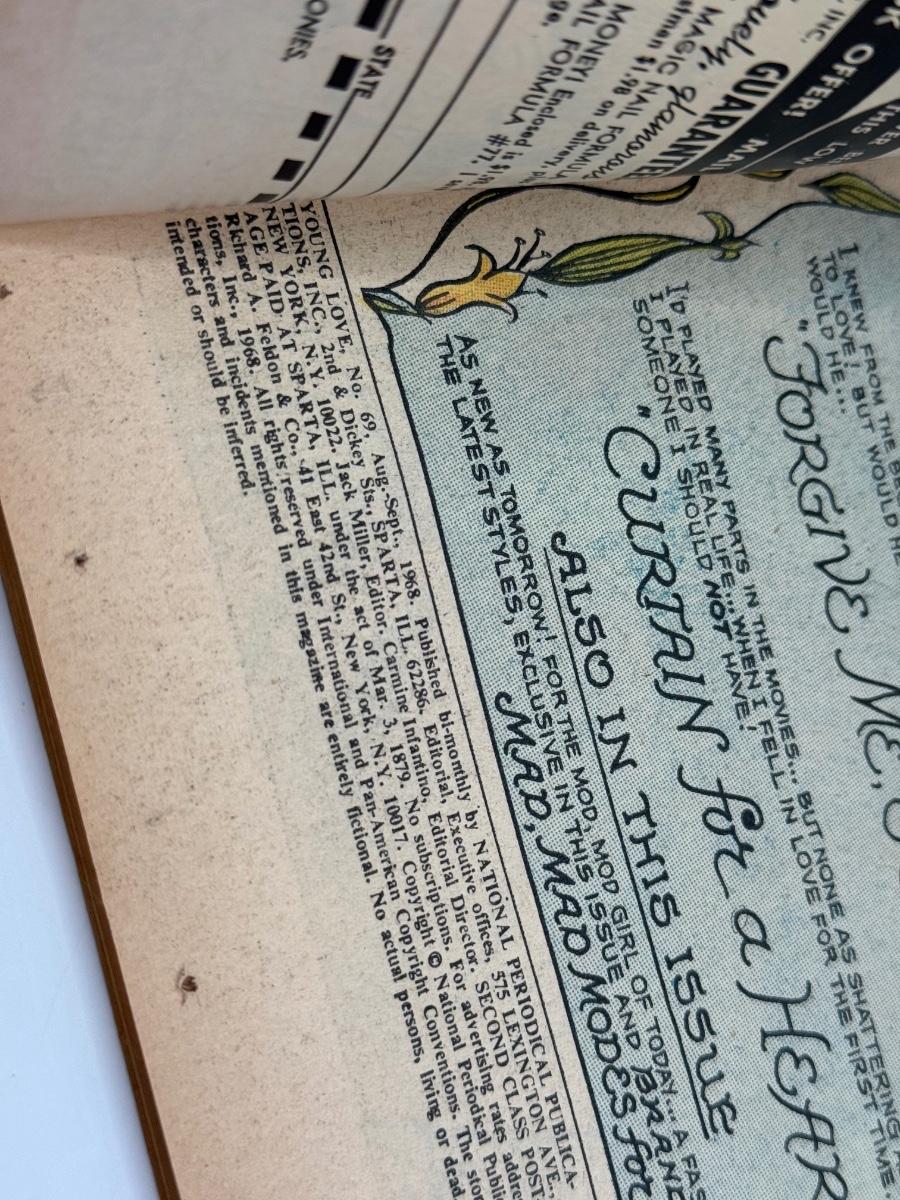 ONIES.
STATE
INC.
OFFER!
THIS LOW
GUARANTE
MAIL
MAGIC NAIL FORMULA
$1.98 on delivery
MONEY! Enclosed is
AIL FORMULA #77. I
I KNEW FROM THE
TO LOVE! BUT WOULD HE
WOULD HE...
"FORGIVE ME,
I'D PLAYED MANY PARTS IN THE MOVIES... BUT NONE AS SHATTERING
I PLAYED IN REAL LIFE...WHEN I FELL IN LOVE FOR THE FIRST TIME
SOMEONE I SHOULD NOT HAVE!
"CURTAIN for a HEAR
ALSO IN THIS ISSUE
AS NEW AS TOMORROW! FOR THE MOD, MOD GIRL OF TODAY... A FAS
THE LATEST STYLES, EXCLUSIVE IN THIS ISSUE AND BRAND
MAD, MAD MODES for
YOUNG LOVE, No. 69, Aug.-Sept., 1968. Published bi-monthly by NATIONAL PERIODICAL PUBLICA-
TIONS, INC., 2nd & Dickey Sts., SPARTA, ILL. 62286. Editorial, Executive offices, 575 LEXINGTON AVE.,
NEW YORK, N.Y. 10022. Jack Miller, Editor. Carmine Infantino, Editorial Director. SECOND CLASS POST-
AGE PAID AT SPARTA, ILL. under the act of Mar. 3, 1879. No subscriptions. For advertising rates addre
Richard A. Feldon & Co., 41 East 42nd St., New York, N.Y. 10017. Copyright © National Periodical Publi
tions, Inc., 1968. All rights reserved under International and Pan-American Copyright Conventions. The stor
characters and incidents mentioned in this magazine are entirely fictional. No actual persons, living or dead
intended or should be inferred.